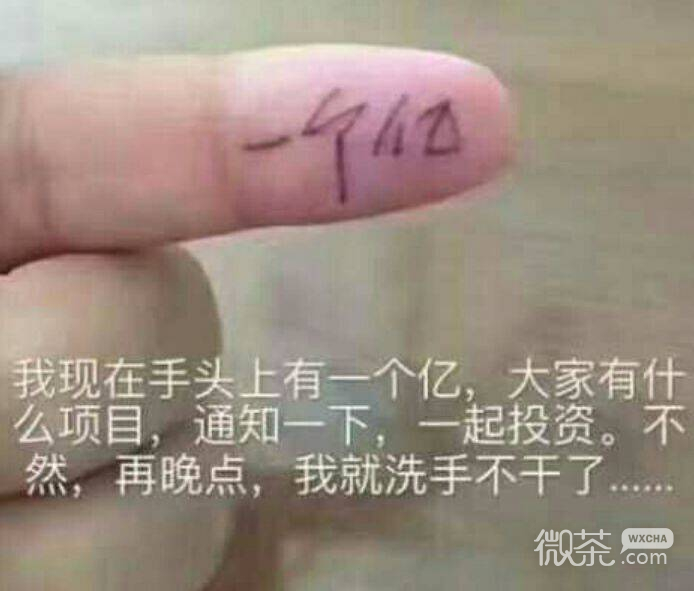 一个亿
我现在手头上有一个亿，大家有什
么项目，通知一下，一起投资。不
然，再晚点，我就洗手不干了......
微茶 WXCHA
.com